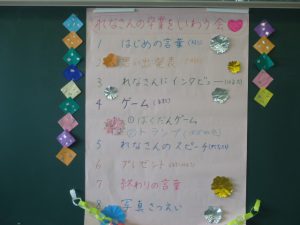 れなさんの卒業をいわう会
1 はじめの言葉
2 思い出発表
3 れなさんにインタビュー
4 ゲーム
①ばくだんゲーム
②トランプ
5 れなさんのスピーチ
6 プレゼント
7 終わりの言葉
8 写真さつえい